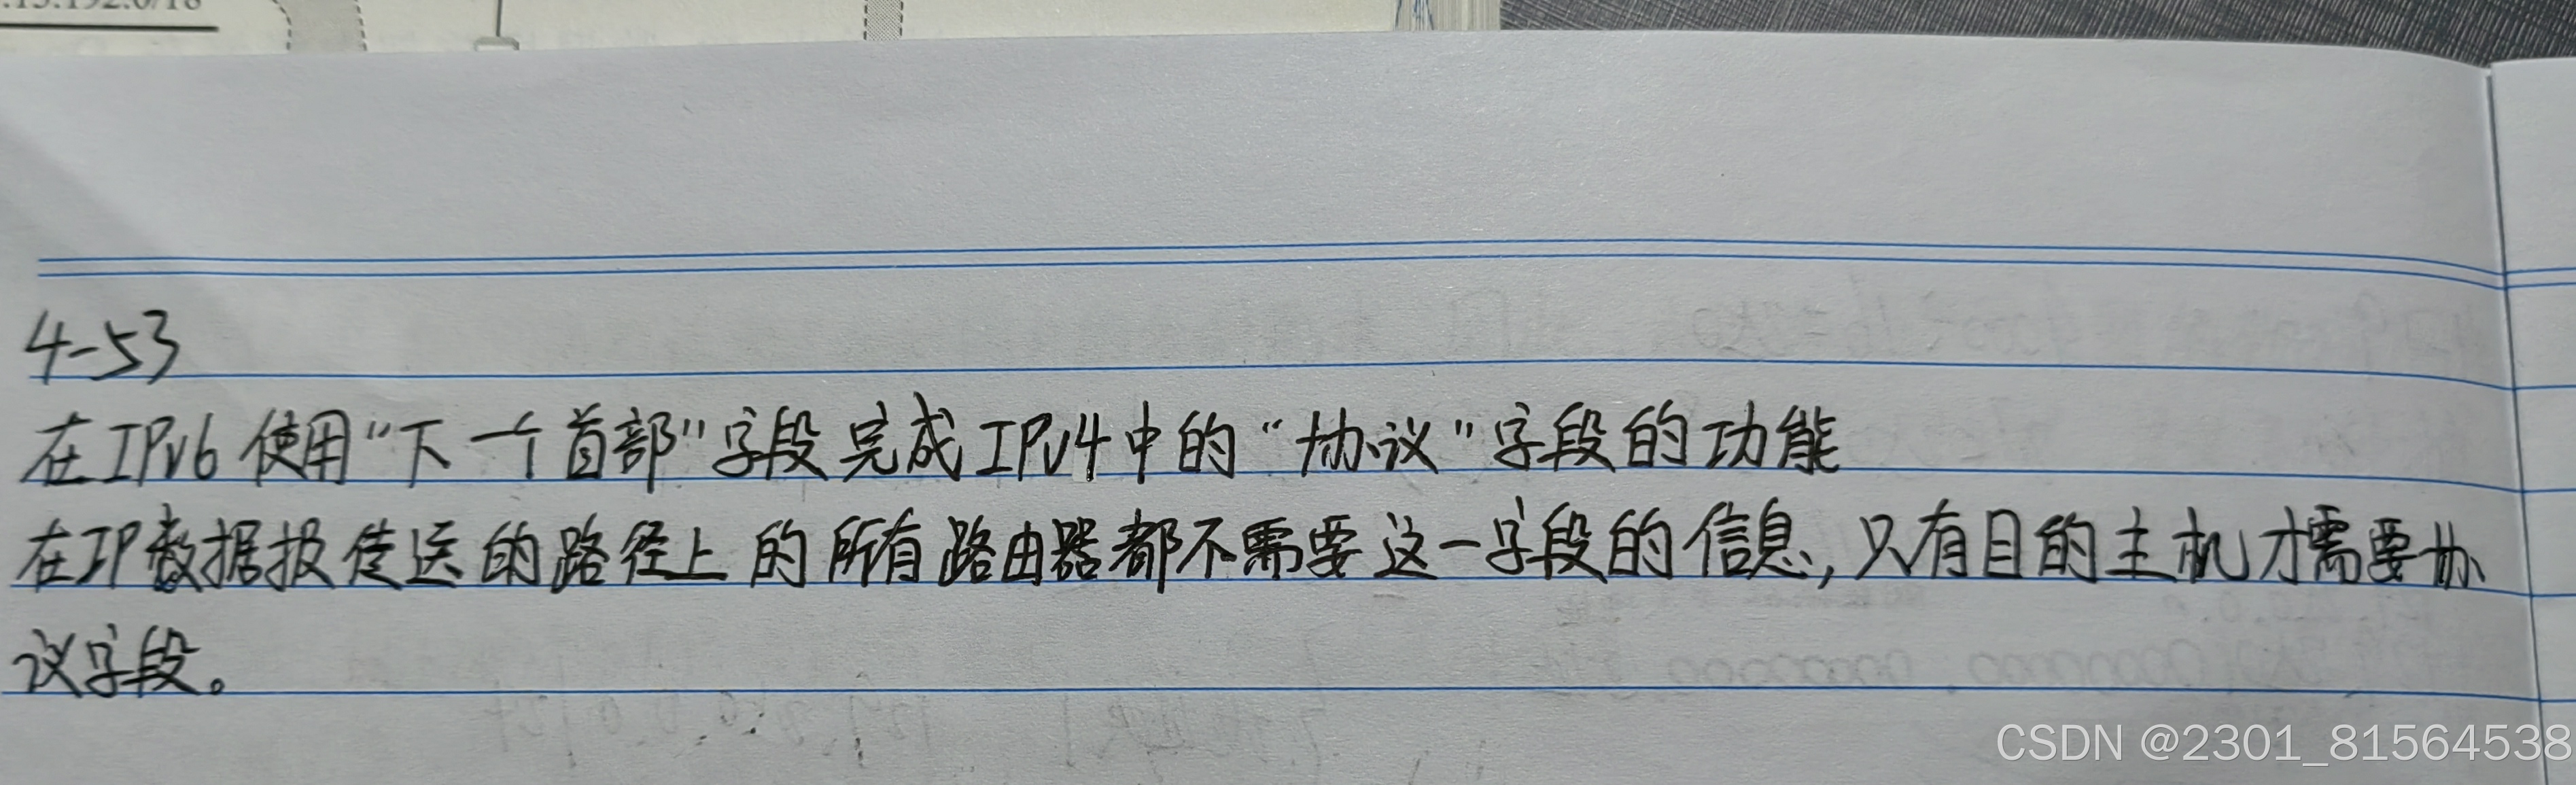 .13.192.0/18
4-53
在IPv6使用“下一个首部”字段完成IPv4中的“协议”字段的功能
在IP数据报传送的路径上的所有路由器都不需要这一字段的信息,只有目的主机才需要协
议字段。
CSDN @2301_81564538